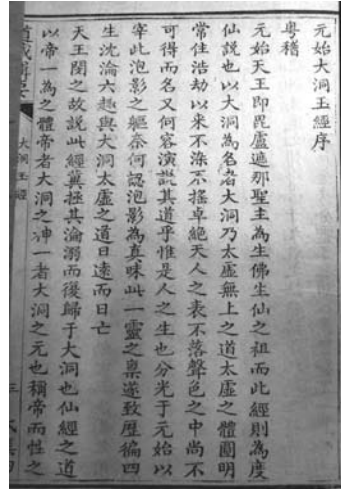 元始大洞玉經序
粵稽
元始天王即毘盧遮那聖主為生佛生仙之祖而此經則為度
仙說也以大洞為名者大洞乃太虛無上之道太虛之體圓明
常住浩劫以來不涤不搖卓絕天人之表不落聲色之中尚不
可得而名又何容演說其道乎惟是人之生也分光于元始以
宰此泡影之軀奈何認泡影為真昧此一靈之稟遂致歷徧四
生沈淪六趣與大洞太虛之道日遠而日亡
天王閔之故說此經冀拯其淪溺而復歸于大洞也仙經之道
以帝一為之體帝者大洞之神一者大洞之元也稱帝而性之
道藏輯要
大洞玉經
三
氐集四